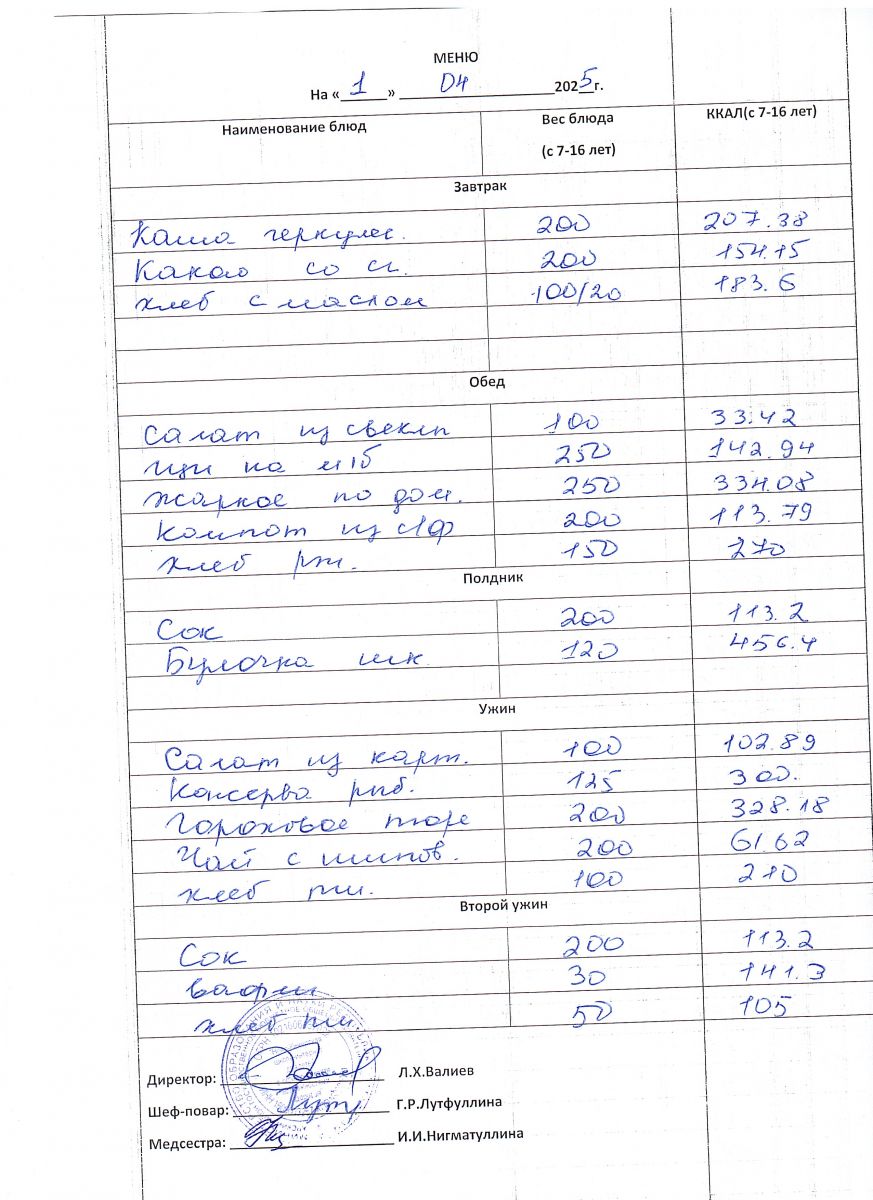 МЕНЮ
На «1» 04 2025г.
Наименование блюд Вес блюда (с 7-16 лет) ККАЛ(с 7-16 лет)
Завтрак
Каша геркулес. 200 207.38
Какао со сг. 200 154.15
хлеб с маслом 100/20 183.6
Обед
Салат из свеклы 100 33.42
щи на м\б 250 142.94
жаркое по дом. 250 334.08
Компот из с\ф 200 113.79
хлеб рж. 150 270
Полдник
Сок 200 113.2
Булочка шк. 120 456.4
Ужин
Салат из карт. 100 102.89
Консерва рыб. 125 300.
Гороховое пюре 200 328.18
Чай с шипов. 200 61.62
хлеб пш. 100 210
Второй ужин
Сок 200 113.2
вафли 30 141.3
хлеб пш 50 105
Директор: Л.Х.Валиев
Шеф-повар: Г.Р.Лутфуллина
Медсестра: И.И.Нигматуллина